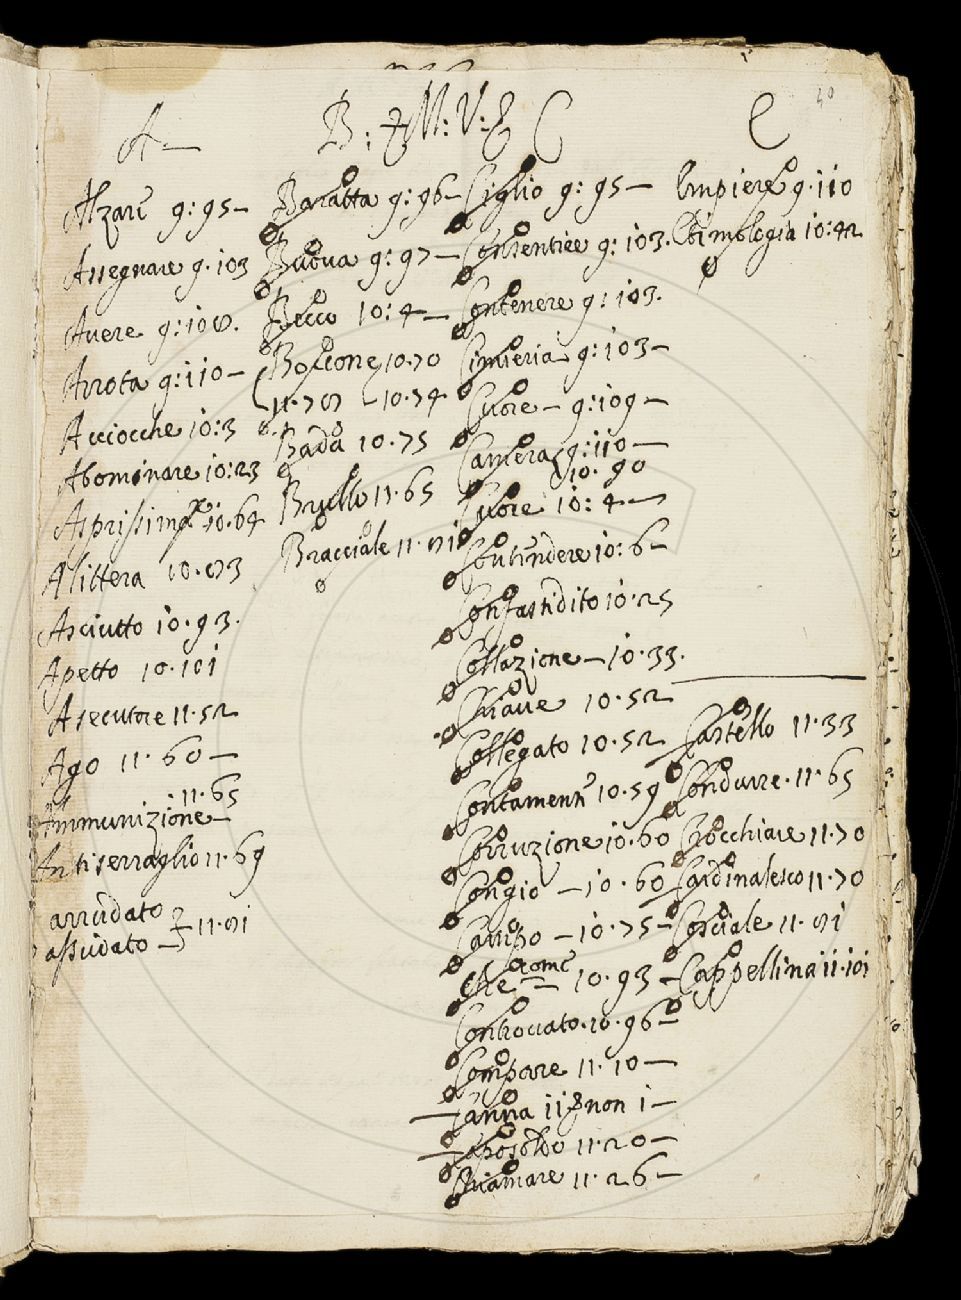 40
A — B: M: V: & C E
Alzare 9: 95 —
Assegnare 9. 103
Avere 9: 108.
Arrota 9: 110 —
Acciocche 10: 3
Abominare 10: 23
10. 64
Alittera 10. 83
Asciutto 10. 93.
Apetto 10. 101
Asecutore 11. 52
Ago 11. 60 —
11. 65
Ammunizione —
Antiserraglio 11. 69
arrudato
assudato — 11. 81
Baratta 9: 96 —
Buova 9: 97 —
Becco 10: 4 —
10. 70
11. 78 10. 74
Bada 10. 75
Brullo 11. 65
Bracciale 11. 81
Ciglio 9: 95 —
Consentire 9: 103.
Contenere 9: 103.
Cimieria 9: 103 —
Cuore — 9: 109 —
Camera 9: 110 —
10. 90
Cuore 10: 4 —
Contendere 10: 6 —
Confastidito 10. 25
Collazione — 10. 33.
Chiave 10. 52
Collegato 10. 52
10. 59
Corruzione 10. 60
Congio — 10. 60
Campo — 10. 75 —
Che come 10. 93 —
10. 96
Compare 11. 10 —
non 1 —
11. 20 —
Chiamare 11. 26 —
Empiere 9. 110
Etimologia 10: 42
Castello 11. 33
Condurre. 11. 65
Crocchiare 11. 70
Cardinalesco 11. 70
Cosciale 11. 81
Cappellina 11. 101